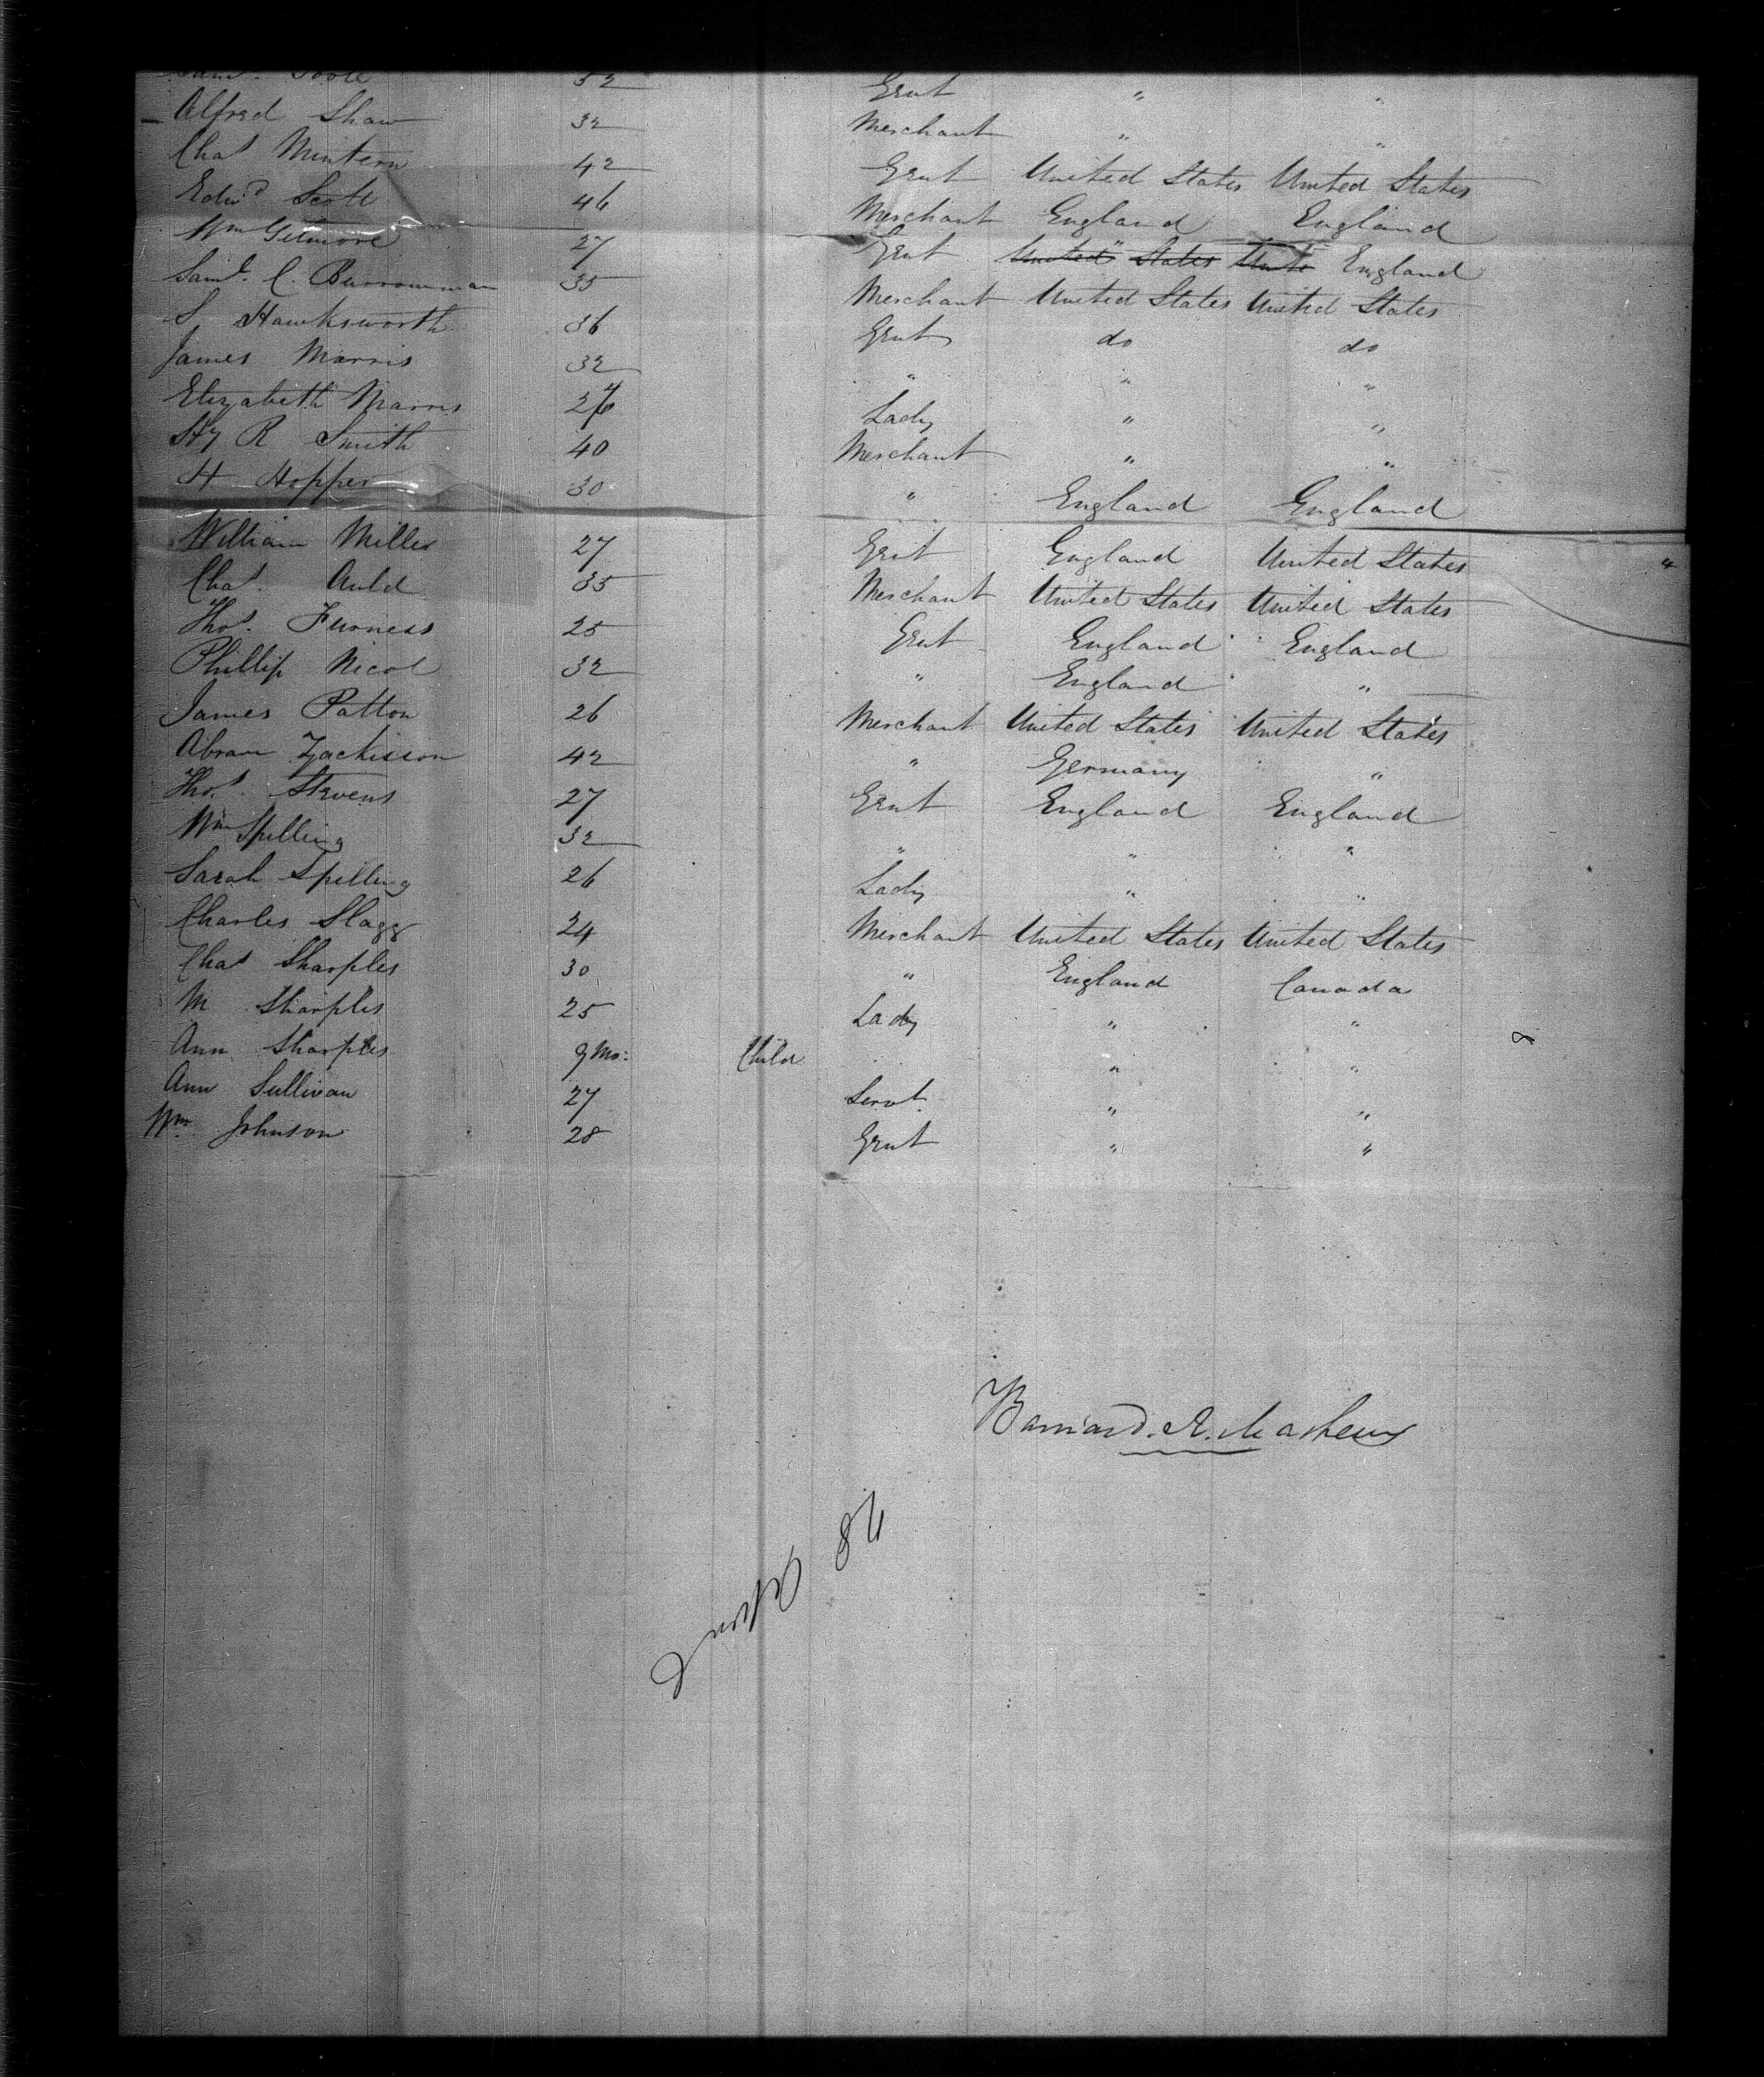 Saml. Poole 32 Gent " "
Alfred Shaw 32 Merchant " "
Chas Mintern 42 Gent United States United States
Edwd Scott 46 Merchant England England
Wm Gilmore 27 Gent United States Unite England
Saml. C. 35 Merchant United States United States
S Hawksworth 36 Gent do do
James Marris 32 " " "
Elizabeth Marris Lady " "
Hy R Smith 40 Merchant " "
H Hopper 30 " England England
William Miller 27 Gent England United States 4
Chas. Auld 35 Merchant United States United States
Thos. Furness 25 Gent England England
Phillip Nicol 32 " England "
James Patton 26 Merchant United States United States
Abram Zackisson 42 " Germany "
Thos. Stevens 27 Gent England England
Wm Spilling 32 " " "
Sarah Spilling 26 Lady " "
Charles Slagg 24 Merchant United States United States
Chas Sharples 30 " England Canada
M Sharples 25 Lady " "
Ann Sharples 9 Mo: Child " " 8
Ann Sullivan 27 Servt. " "
Wm. Johnson 28 Gent " "
Barnard. R. Mathews